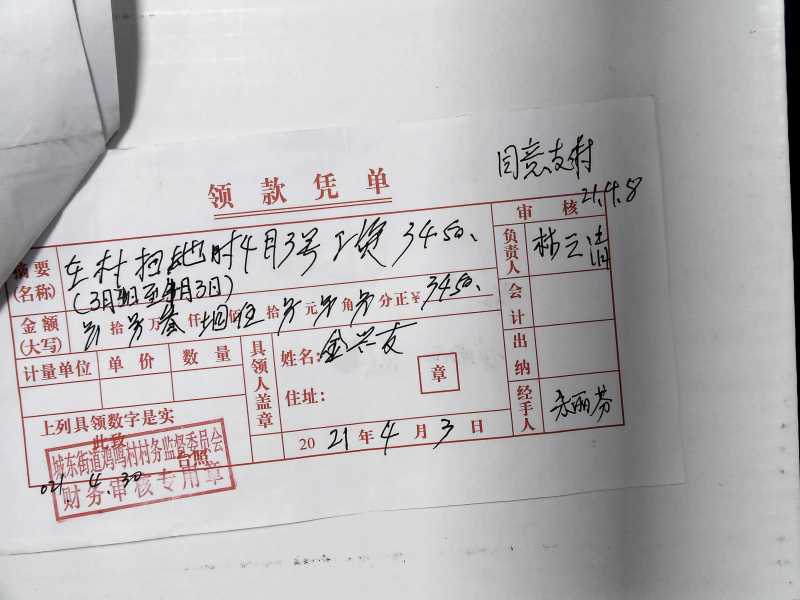 同意支付
21.4.8
领款凭单
审核
摘要(名称)
在村扫地时4月3号工资3450、
(3月4日至4月3日)
负责人
金额(大写)
拾万叁仟肆佰伍拾元角分正¥3450、
会计
计量单位 单价 数量
具领人盖章
姓名:金兴友
出纳
住址:
章
上列具领数字是实
此致
台照
经手人
2021年4月3日
城东街道鸡鸣村村务监督委员会
财务审核专用章
021.4.30